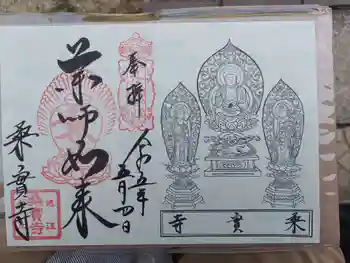 奉拝
令和五年
五月四日
薬師如来
来實寺
近江
来實寺
寺實来